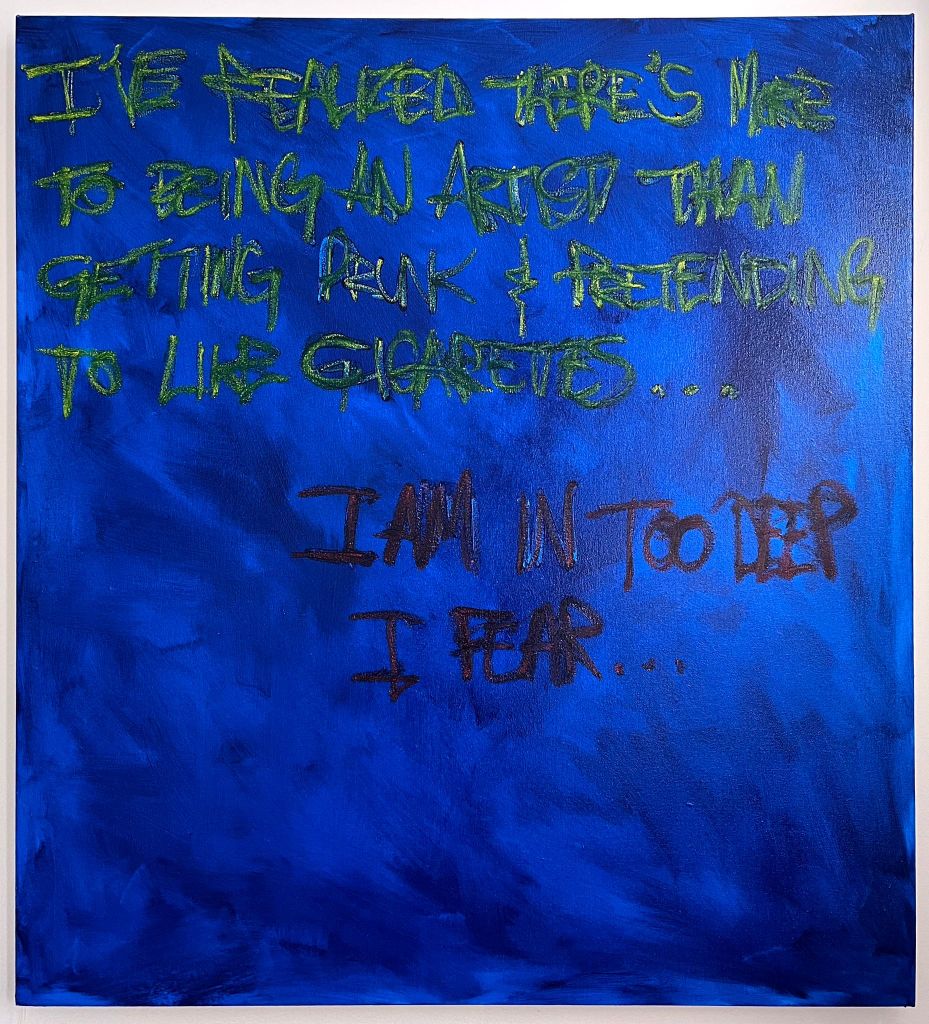 I'VE REALIZED THERE'S MORE
TO BEING AN ARTIST THAN
GETTING DRUNK & PRETENDING
TO LIKE CIGARETTES...
I AM IN TOO DEEP
I FEAR...